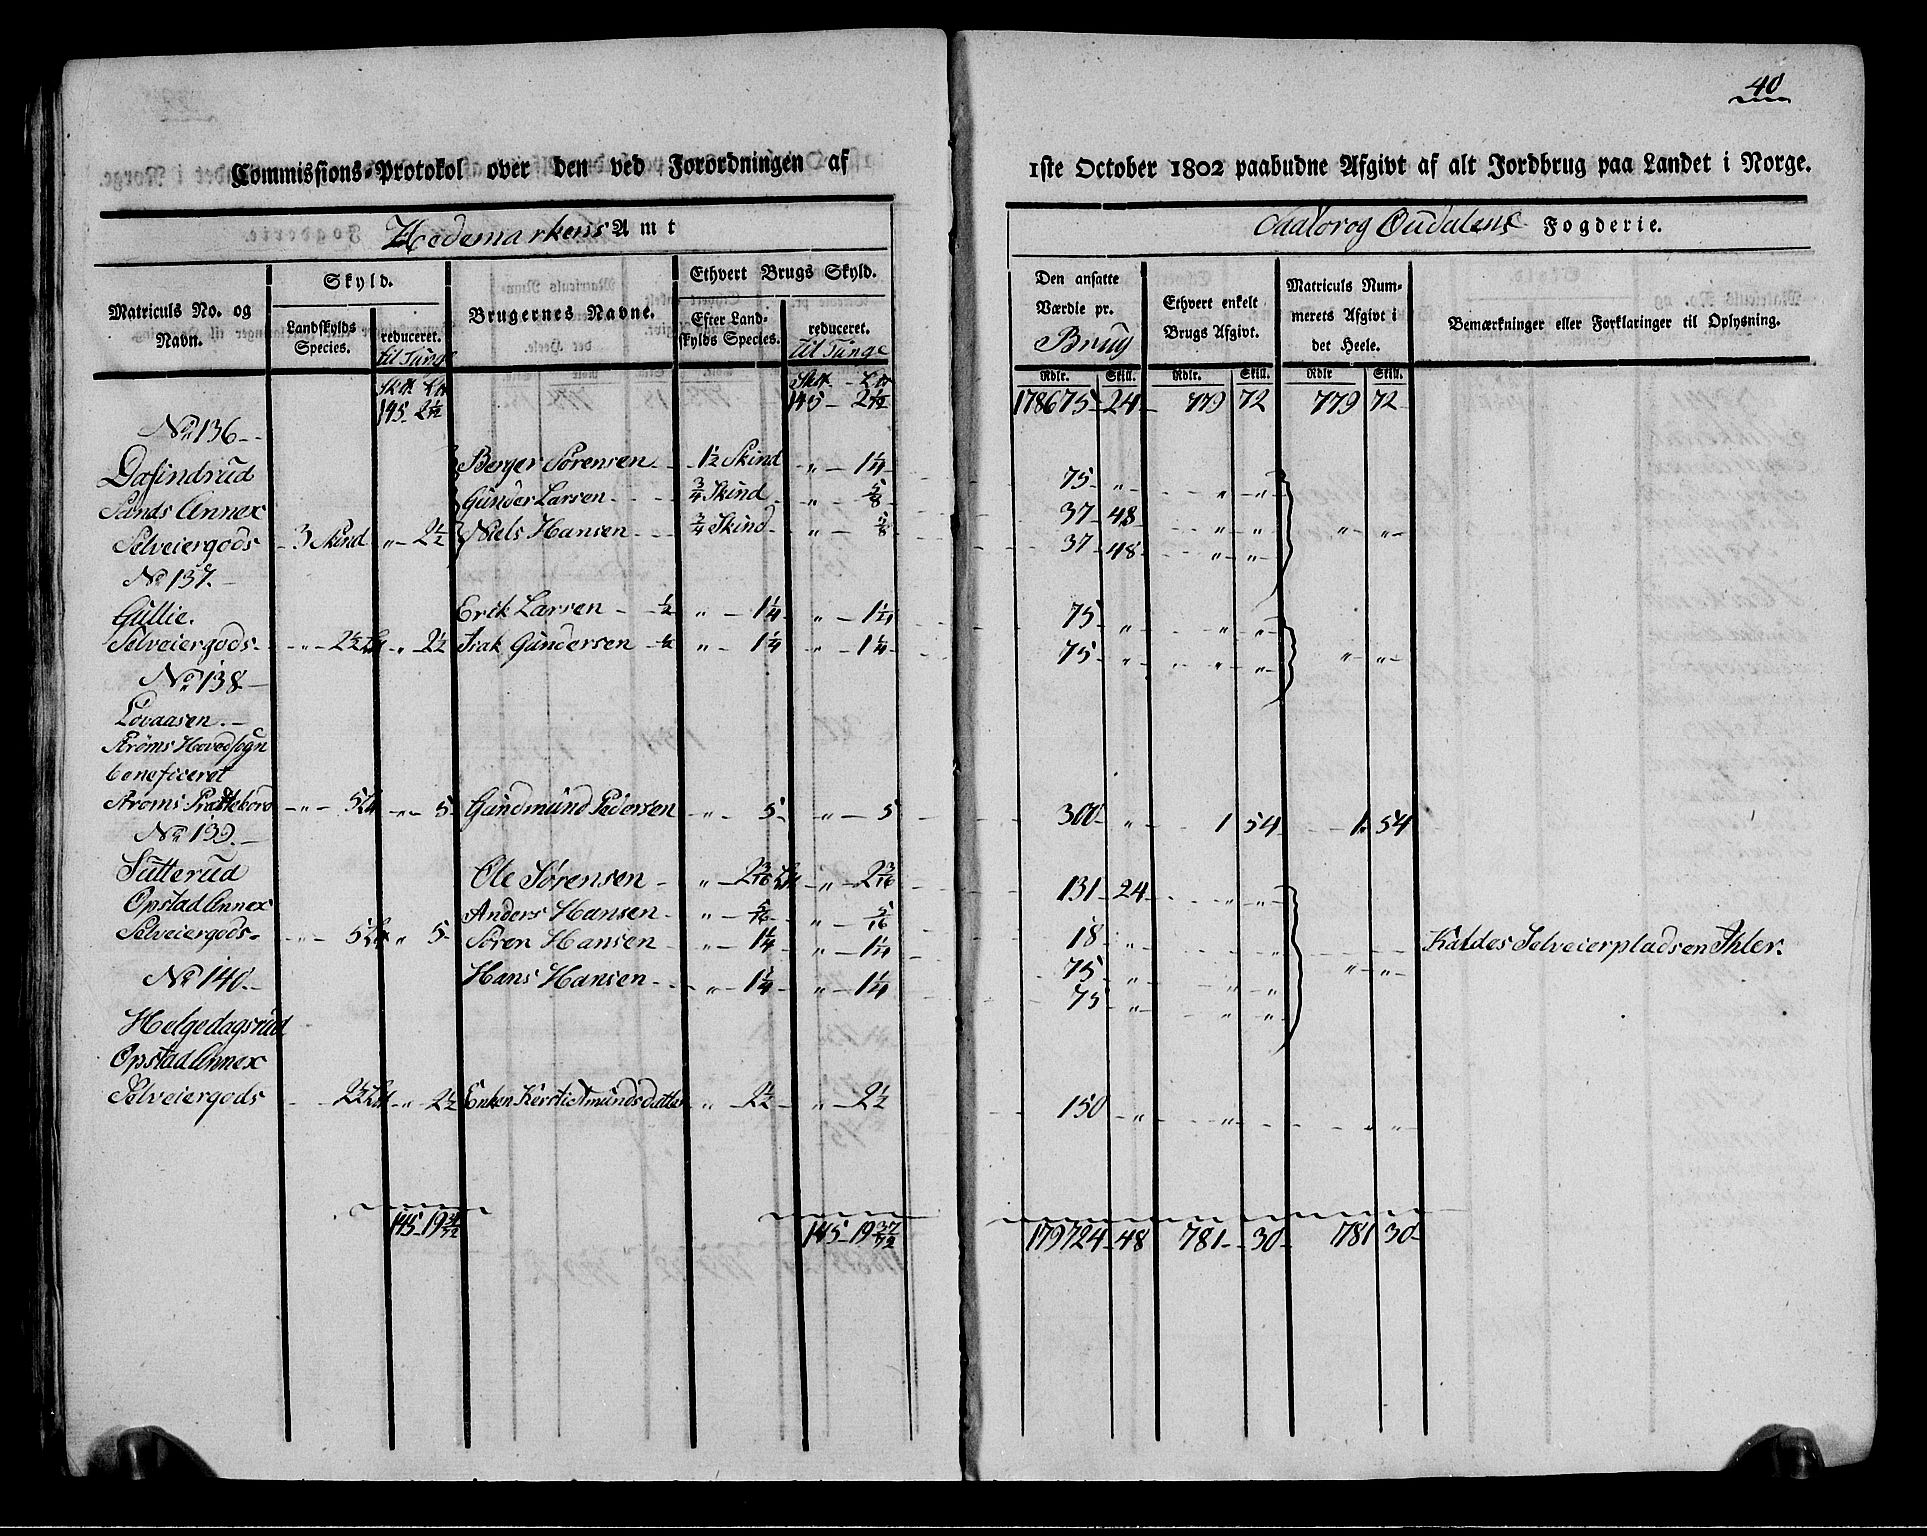 40
Commissions-Protokol over den ved Forordningen af 1ste October 1802 paabudne Afgivt af alt Jordbrug paa Landet i Norge.
Hedemarkens Amt
Oudalens Fogderie.
Matriculs No. og Navn.
Skyld.
Landskylds Species.
reduceret. til Tunge
Brugernes Navne.
Ethvert Brugs Skyld.
Efter Landskylds Species.
reduceret. til Tunge
Den ansatte Værdie pr. Brug
Ethvert enkelt Brugs Afgivt.
Matriculs Nummerets Afgivt i det Heele.
Bemærkninger eller Forklaringer til Oplysning.
Rdlr. Skill. Rdlr. Skill. Rdlr Skill.
145 - 2 1/12 145 - 2 1/12 178675 - 24 - 779 72 779 72
No 136
Dafindrud Berger Sørensen 1½ Skind " 1¼ 75 " " "
Sands Annex Gunder Larsen ¾ Skind " 5/8 37 - 48 " "
Selveiergods 3 Skind " 2½ Niels Hansen ¾ Skind " 5/8 37 - 48 " " " "
No 137.
Gullie. Erik Larsen ½ " 1¼ " 1¼ 75 " " "
Selveiergods " 2½ " 2½ Isak Gundersen ½ " 1¼ " 1¼ 75 " " " " "
No 138
Lövaasen.
Strøms Hovedsogn
beneficeret
Strøms Præstebord " 5 " 5 Gundmund Pedersen " 5 " 5 300 " 1 54 1 54
No 139.
Sutterud Ole Sørensen " 2 3/16 " 2 3/16 131 - 24 " "
Opstad Annex Anders Hansen " 5/16 " 5/16 18 " Kaldes Selveierpladsen Ihler.
Selveiergods " 5 " 5 Søren Hansen " 1¼ " 1¼ 75 " " " " "
No 140. Hans Hansen " 1¼ " 1¼ 75 " " "
Helgedagsrud
Opstad Annex
Selveiergods 2½ " 2½ Enken Kersti Amundsdatter " 2½ " 2½ 150 " " " "
145 - 19 145 - 19 179724 - 48 781 - 30 781 30